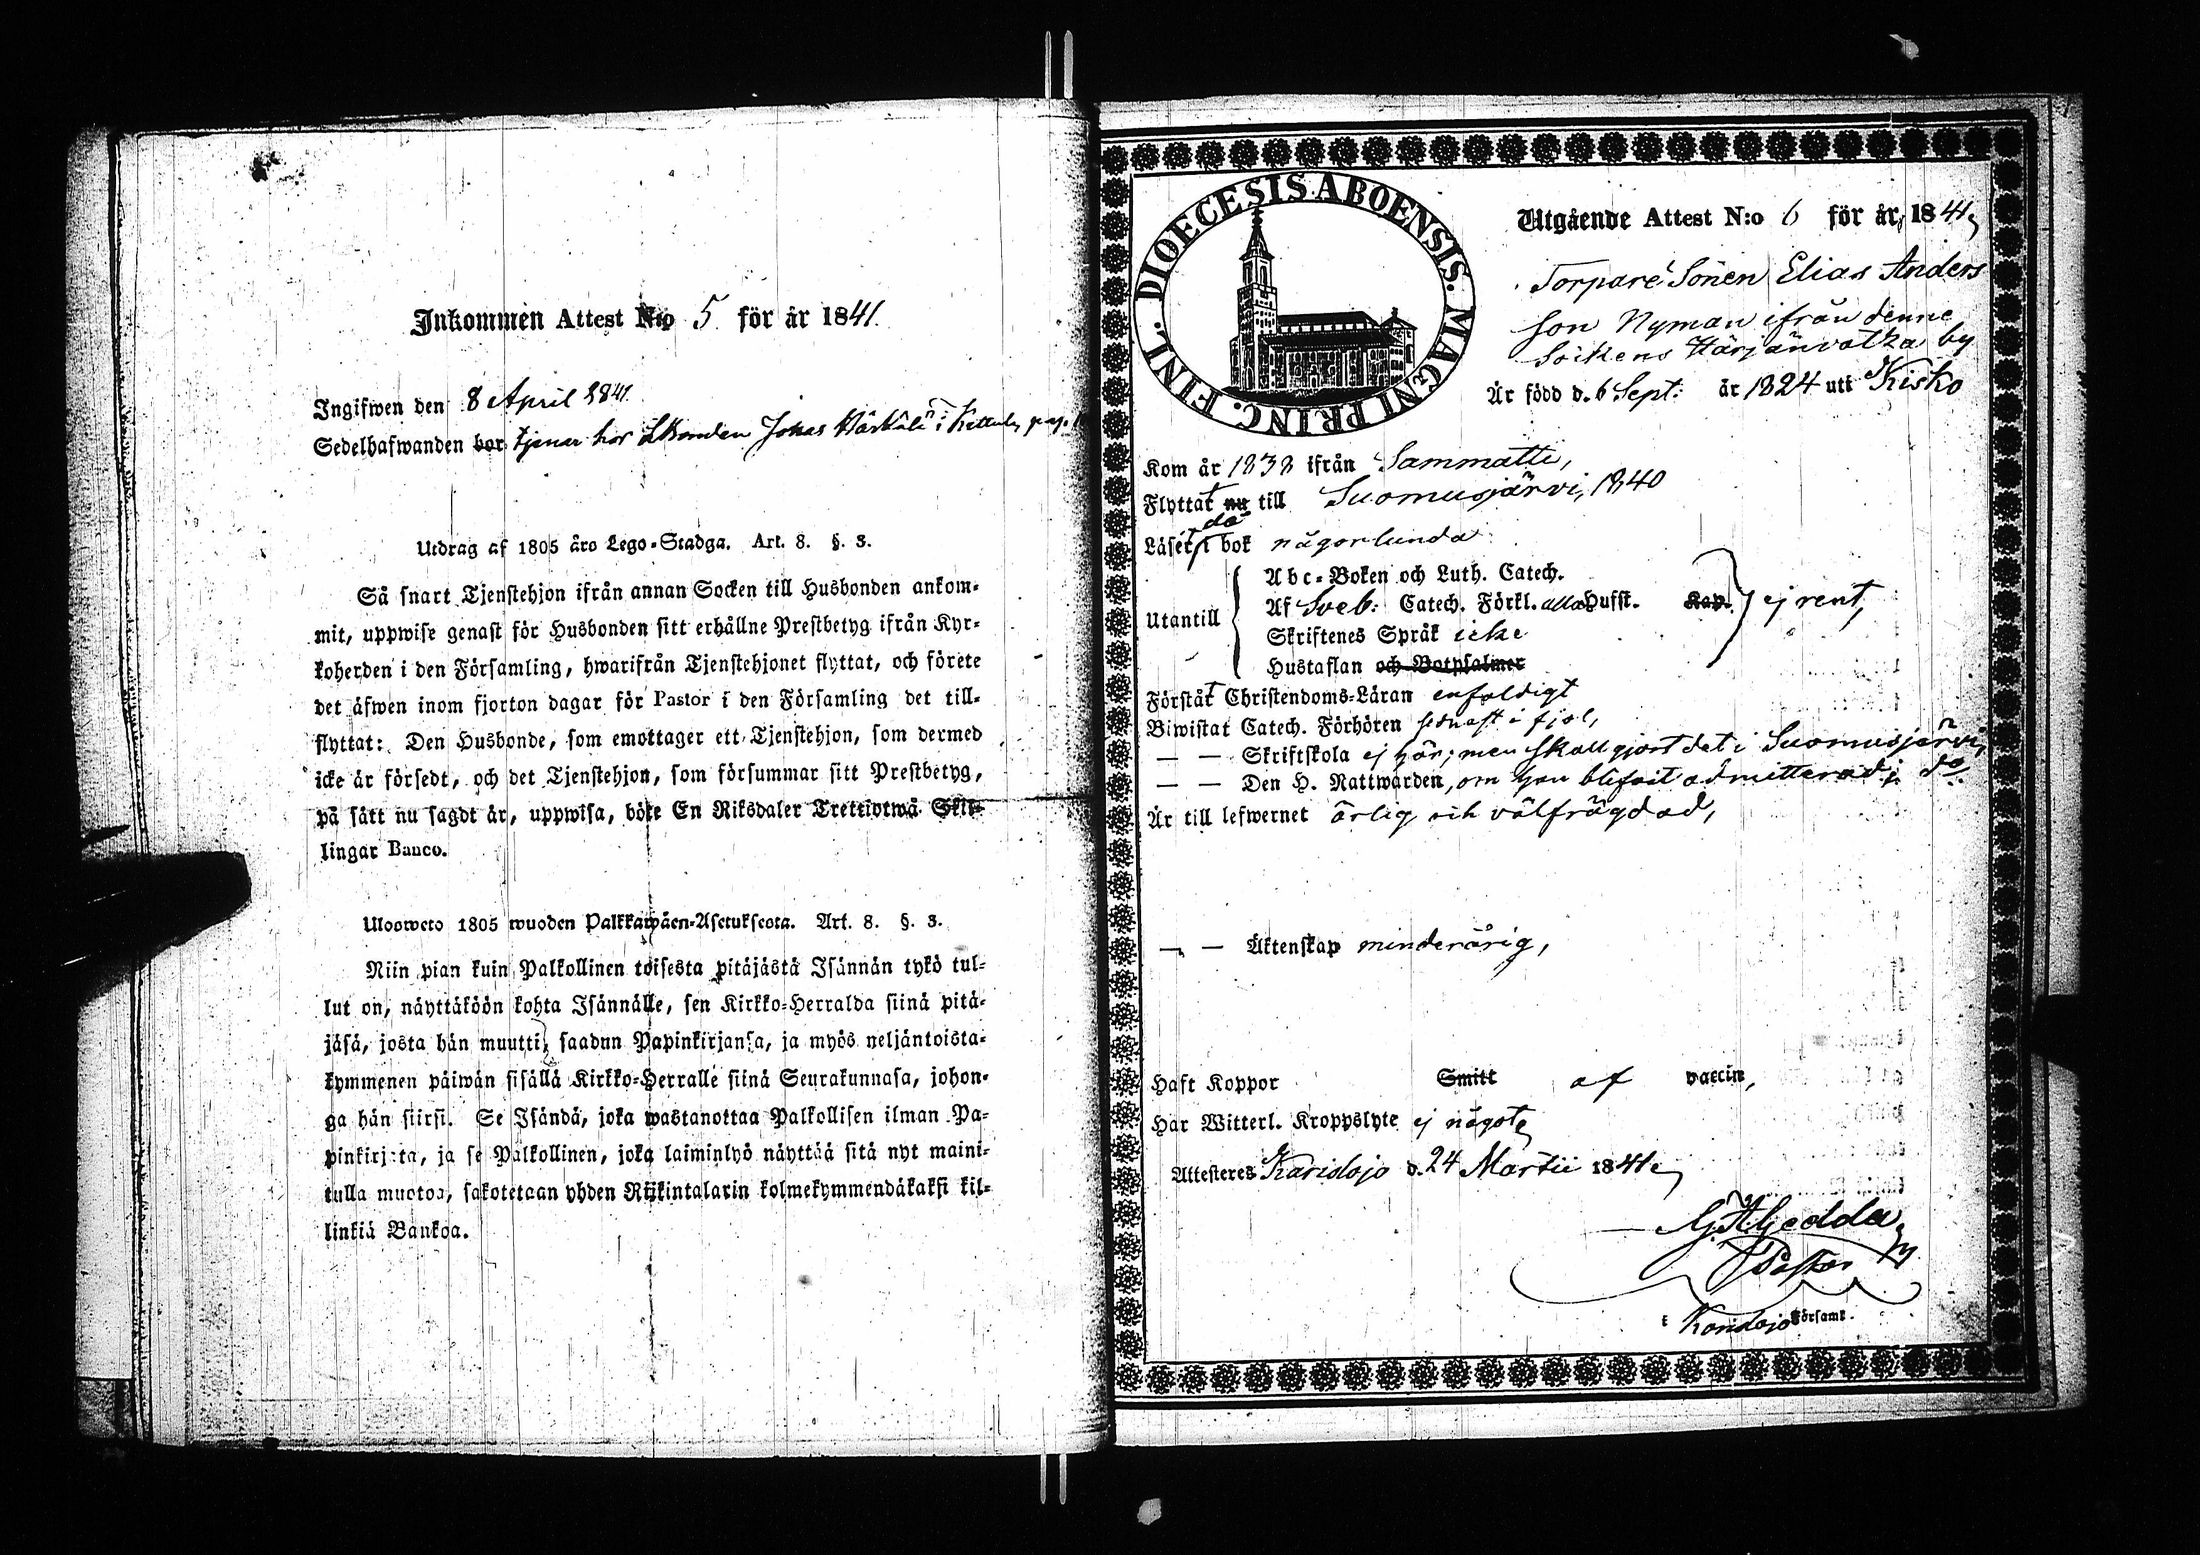 Inkommen Attest N:o 5 för år 1841.
Ingifwen den 8 April 1841
Sedelhafwanden bor tjenar hos Jonas Härkälä i
Utdrag af 1805 års Lego-Stadga. Art. 8. §. 3.
Så snart Tjenstehjon ifrån annan Socken till Husbonden ankom-
mit, uppwise genast för Husbonden sitt erhållne Prestbetyg ifrån Kyr-
koherden i den Församling, hwarifrån Tjenstehjonet flyttat, och förete
det äfwen inom fjorton dagar för Pastor i den Församling det till-
flyttat: Den Husbonde, som emottager ett Tjenstehjon, som dermed
icke är försedt, och det Tjenstehjon, som försummar sitt Prestbetyg,
på sätt nu sagdt är, uppwisa, böte En Riksdaler Trettiotwå Skil-
lingar Banco.
Uloswето 1805 wuoden Palkkawäen-Asetuksesta. Art. 8. §. 3.
Niin pian kuin Palkollinen toisesta pitäjästä Isännän tykö tul-
lut on, näyttäköön kohta Isännälle, sen Kirkko-Herralda siinä pitä-
jäsä, josta hän muutti, saadun Papinkirjansa, ja myös neljäntoista-
kymmenen päiwän sisällä Kirkko-Herralle siinä Seurakunnasa, johon-
ga hän siirsi. Se Isändä, joka wastanottaa Palkollisen ilman Pa-
pinkirjata, ja se Palkollinen, joka laiminlyö näyttää sitä nyt maini-
tulla muotoa, sakotetaan yhden Riikintalarin kolmekymmendäkaksi kil-
linkiä Bankoa.
DIOECESIS ABOENSIS. MAGNI PRINC. FINL.
Utgående Attest N:o 6 för år 1841,
Torpare Sonen Elias Anders
son Nyman ifrån denne
Sockens Härjänvatza by
Är född d. 6 Sept: år 1824 uti Kisko
Kom år 1838 ifrån Sammatti,
Flyttat nu till Suomusjärvi, 1840
då
Läset i bok någorlunda
Utantill
Abc-Boken och Luth. Catech.
Af Sveb: Catech. Förkl. alla Hufst. Kap. ej rent,
Skriftenes Språk icke
Hustaflan och Botpsalmer
Förståt Christendoms-Läran enfaldigt
Biwistat Catech. Förhören senast i fjol,
— — Skriftskola ej här; men skall gjort det i Suomusjärvi,
— — Den H. Nattwarden, om han blifvit admitterad i do.
Är till lefwernet ärlig och välfrägdad,
— — Äktenskap minderårig,
Haft Koppor Smitt af vaccin,
Har Witterl. Kroppslyte ej något,
Attesteres Karislojo d. 24 Martii 1841,
G. H. Gedda,
Pastor
i Karislojo Församl.